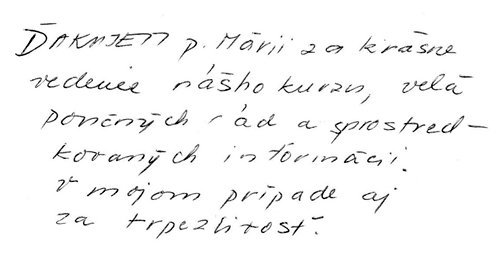 ĎAKUJEM p. Márii za krásne
vedenie nášho kurzu, veľa
poučných rád a sprostred-
kovaných informácií.
V mojom prípade aj
za trpezlivosť.